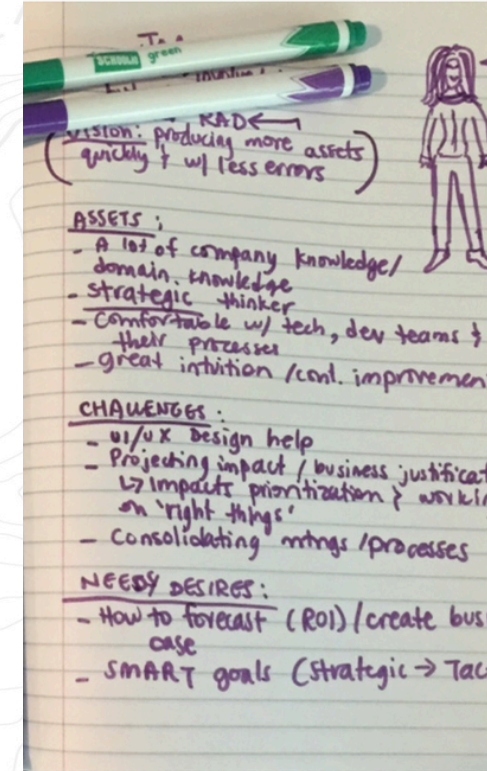 SCHOOLM green
RAD
Vision: producing more assets
quickly & w/ less errors
ASSETS:
- A lot of company knowledge/
domain. knowledge
- strategic thinker
- comfortable w/ tech, dev teams &
their processes
- great intuition / cont. improvemen
CHALLENGES:
- UI/UX Design help
- Projecting impact / business justificat
↳ Impacts prioritization & worki
on 'right things'
- Consolidating mtngs / processes
NEEDS/ DESIRES:
- How to forecast (ROI) / create bus
case
- SMART goals (strategic → Tac